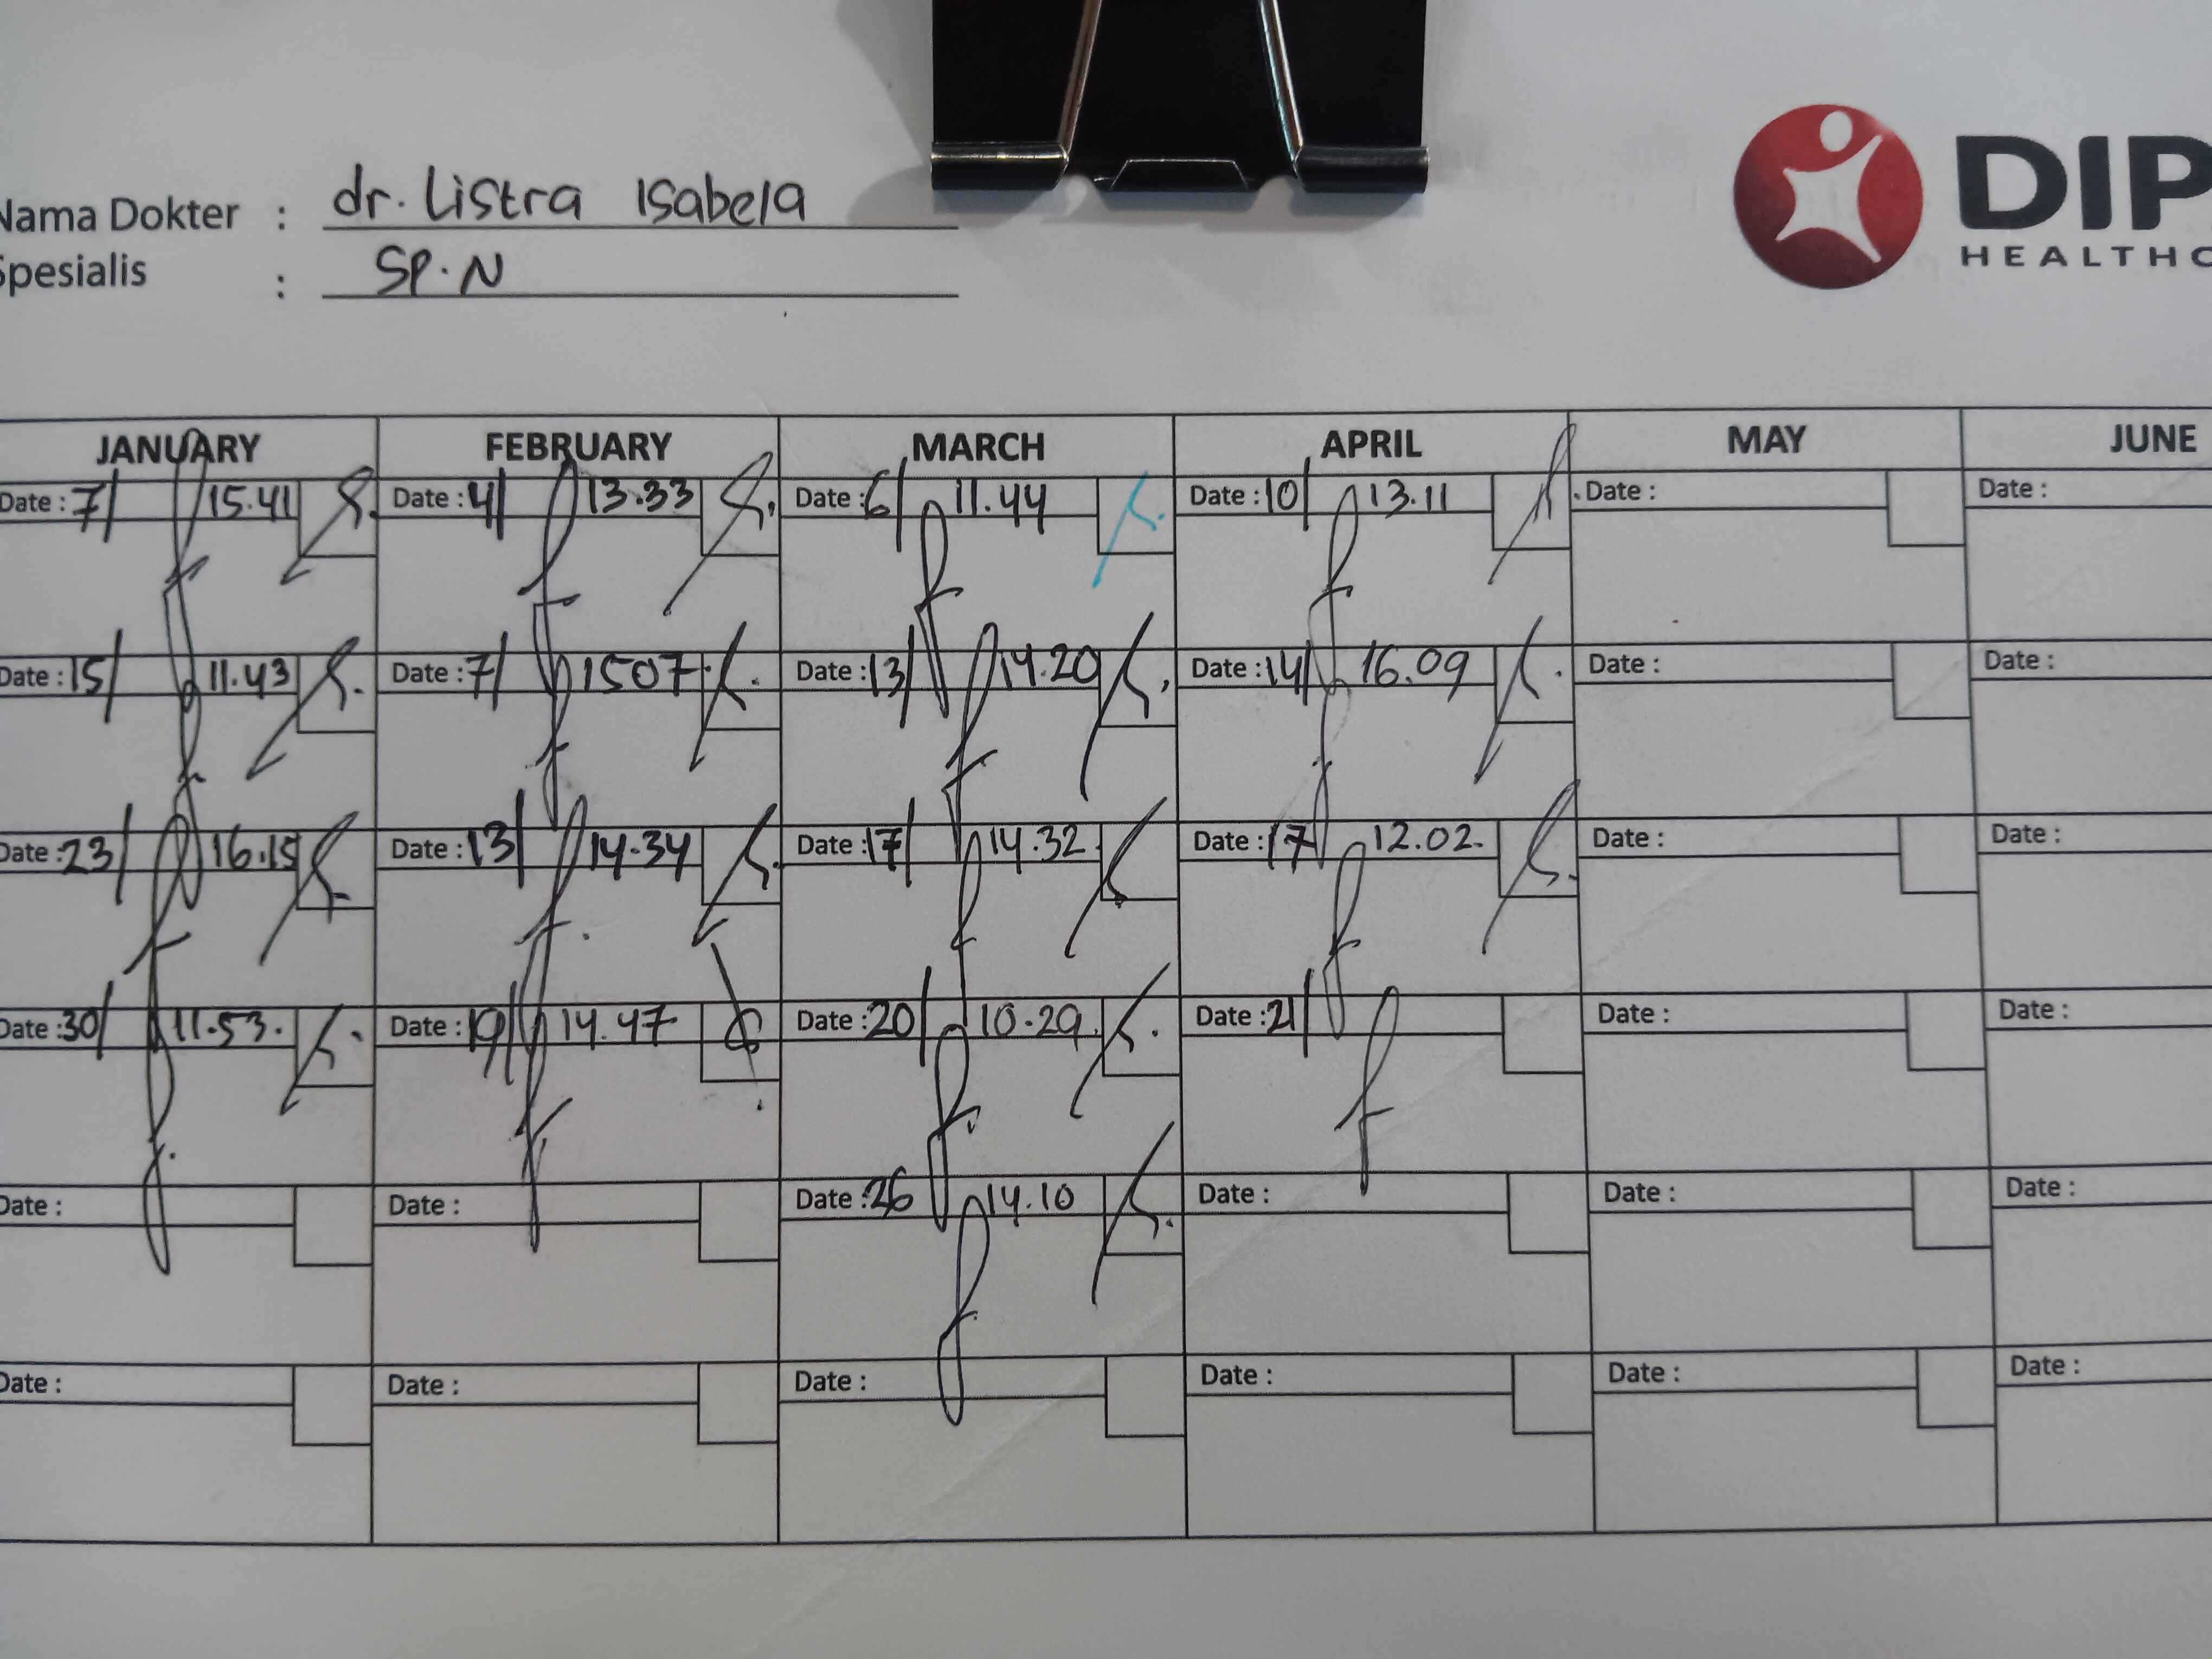 Nama Dokter : dr. Listra Isabela
Spesialis : SP. N
DIP
HEALTHC
JANUARY FEBRUARY MARCH APRIL MAY JUNE
Date : 7/ 15.41 Date : 4/ 13.33 Date : 6/ 11.44 Date : 10/ 13.11 Date : Date :
Date : 15/ 11.43 Date : 7/ 1507 Date : 13/ 14.20 Date : 14/ 16.09 Date : Date :
Date : 23/ 16.15 Date : 13/ 14.34 Date : 17/ 14.32 Date : 17/ 12.02. Date : Date :
Date : 30/ 11.53. Date : 19/ 14.47 Date : 20/ 10.29 Date : 21/ Date : Date :
Date : Date : Date : 26 14.10 Date : Date : Date :
Date : Date : Date : Date : Date : Date :